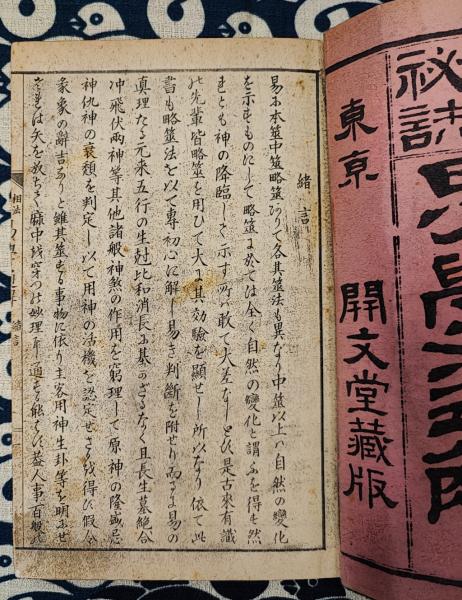 祕誌
東京
開文堂藏版
緒言
易に本筮中筮略筮ありて各其筮法も異なり中筮以上は自然の變化
を示すものにして略筮に於ては全く自然の變化と謂ふを得も然
れとも神の降臨して示す所は敢て大差なしとす是古來有識
の先輩皆略筮を用ひて大に其効驗を顯せし所以なり依て此
書も略筮法を以て專初心に解し易き判斷を附せり而して易の
眞理たる元來五行の生尅比和消長に基かざるなく且長生墓絶合
冲飛伏兩神等其他諸般神煞の作用を窮理して原神の隆盛忌
神仇神の衰頽を判定し以て用神の活機を認定せざるを得ず假令
彖象の辭吉なりと雖其筮する事物に依り主客用神生卦等を明にせ
は矢を放ちて麻中
穿つの妙理に通する能はず蓋人事百般
相法
緒言